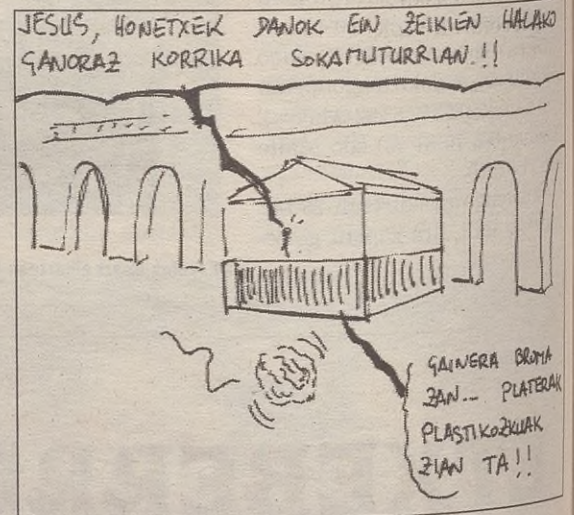 JESUS, HONETXEK DANOK EIN ZEIKIEN HALAKO
GANORAZ KORRIKA SOKAMUTURRIAN.!!
GAINERA BROMA
ZAN... PLATERAK
PLASTIKOZKUAK
ZIAN TA!!